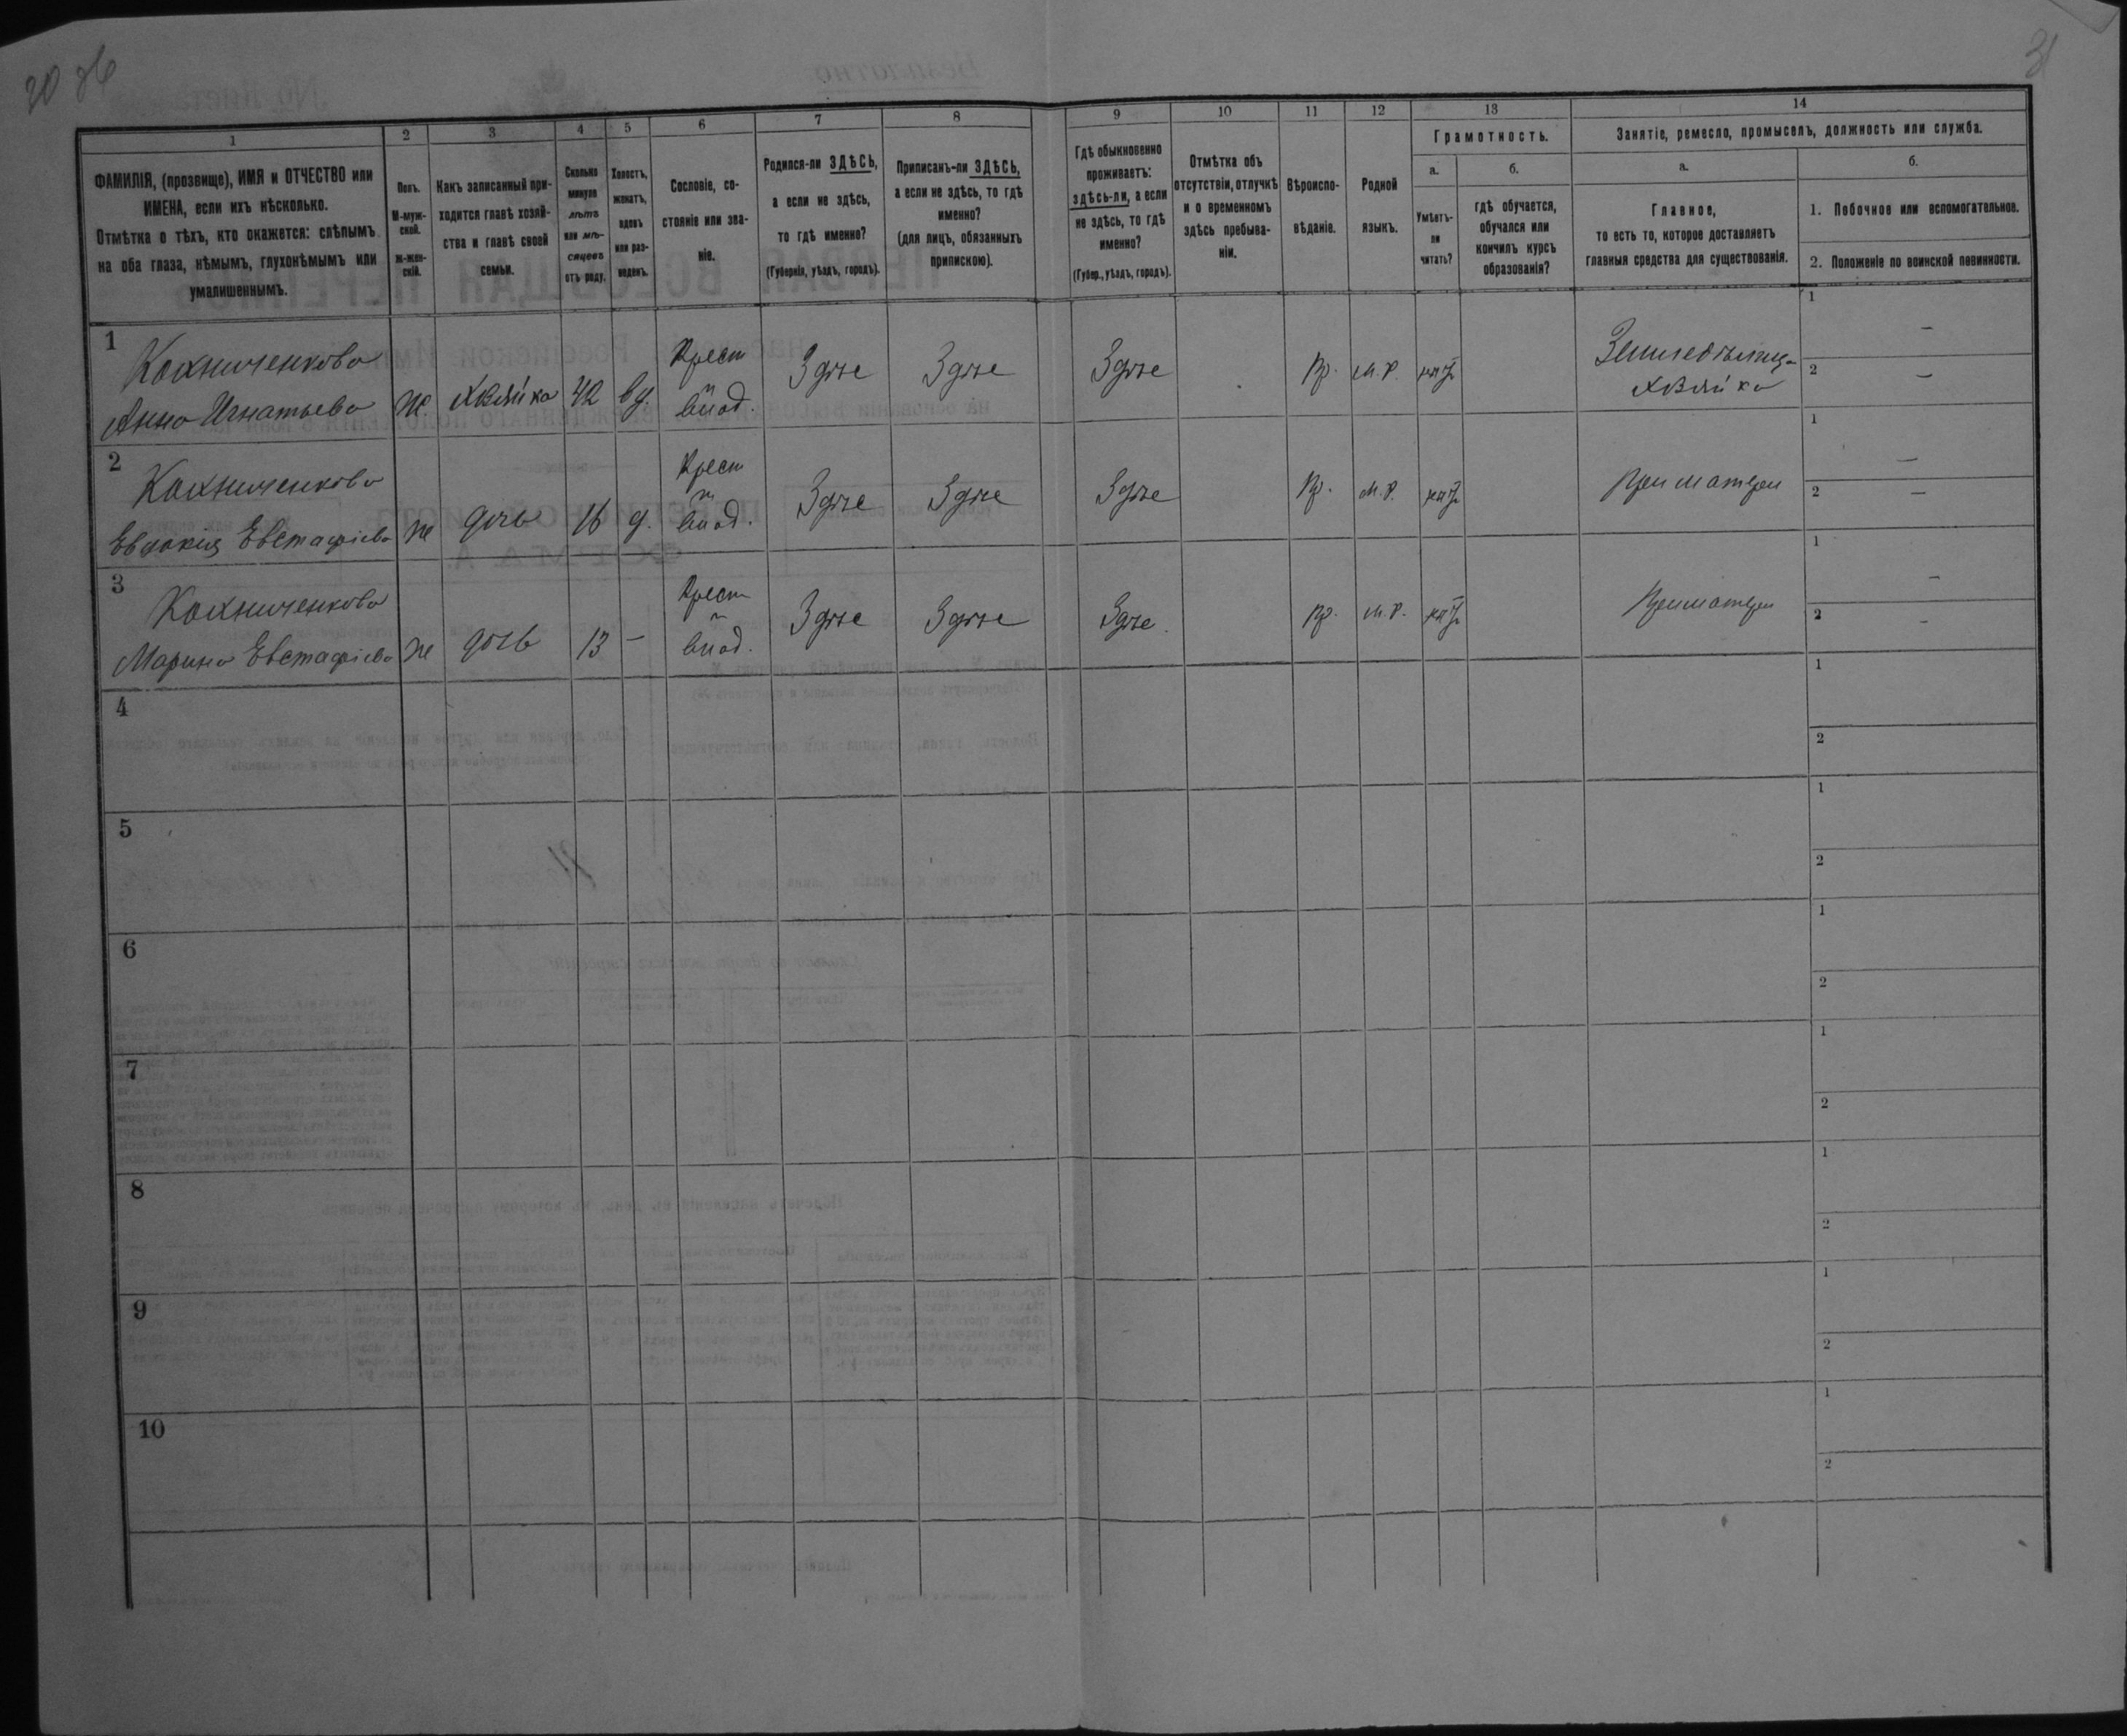 20 об
31
1
2
3
4
5
6
7
8
9
10
11
12
13
14
ФАМИЛІЯ, (прозвище), ИМЯ и ОТЧЕСТВО или
ИМЕНА, если ихъ нѣсколько.
Отмѣтка о тѣхъ, кто окажется: слѣпымъ
на оба глаза, нѣмымъ, глухонѣмымъ или
умалишеннымъ.
Полъ.
М-муж-
ской.
Ж-жен-
скій.
Какъ записанный при-
ходится главѣ хозяй-
ства и главѣ своей
семьи.
Сколько
минуло
лѣтъ
или мѣ-
сяцевъ
отъ роду.
Холостъ,
женатъ,
вдовъ
или раз-
веденъ.
Сословіе, со-
стояніе или зва-
ніе.
Родился-ли ЗДѢСЬ,
а если не здѣсь,
то гдѣ именно?
(Губернія, уѣздъ, городъ).
Приписанъ-ли ЗДѢСЬ,
а если не здѣсь, то гдѣ
именно?
(для лицъ, обязанныхъ
припискою).
Гдѣ обыкновенно
проживаетъ:
здѣсь-ли, а если
не здѣсь, то гдѣ
именно?
(Губер., уѣздъ, городъ).
Отмѣтка объ
отсутствіи, отлучкѣ
и о временномъ
здѣсь пребыва-
ніи.
Вѣроиспо-
вѣданіе.
Родной
языкъ.
Грамотность.
а.
Умѣетъ-
ли
читать?
б.
гдѣ обучается,
обучался или
кончилъ курсъ
образованія?
Занятіе, ремесло, промыселъ, должность или служба.
а.
Главное,
то есть то, которое доставляетъ
главныя средства для существованія.
б.
1. Побочное или вспомогательное.
2. Положеніе по воинской повинности.
1
Кахниченкова
Анна Игнатьева
Ж.
хозяйка
42
вд.
Крест
Здѣсь
Здѣсь
Здѣсь
Пр.
М.Р.
нѣтъ
Земледѣлица
хозяйка
1 –
2 –
2
Кахниченкова
Евдокия Евстафіева
Ж
дочь
16
д.
Крест
Здѣсь
Здѣсь
Здѣсь
Пр.
М.Р.
нѣтъ
При матери
1 –
2 –
3
Кахниченкова
Марина Евстафіева
Ж
дочь
13
–
Крест
Здѣсь
Здѣсь
Здѣсь
Пр.
М.Р.
нѣтъ
При матери
1 –
2 –
4
1
2
5
1
2
6
1
2
7
1
2
8
1
2
9
1
2
10
1
2